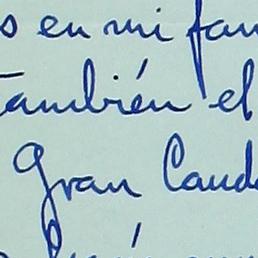 s en mi fam
también el
Gran Caud